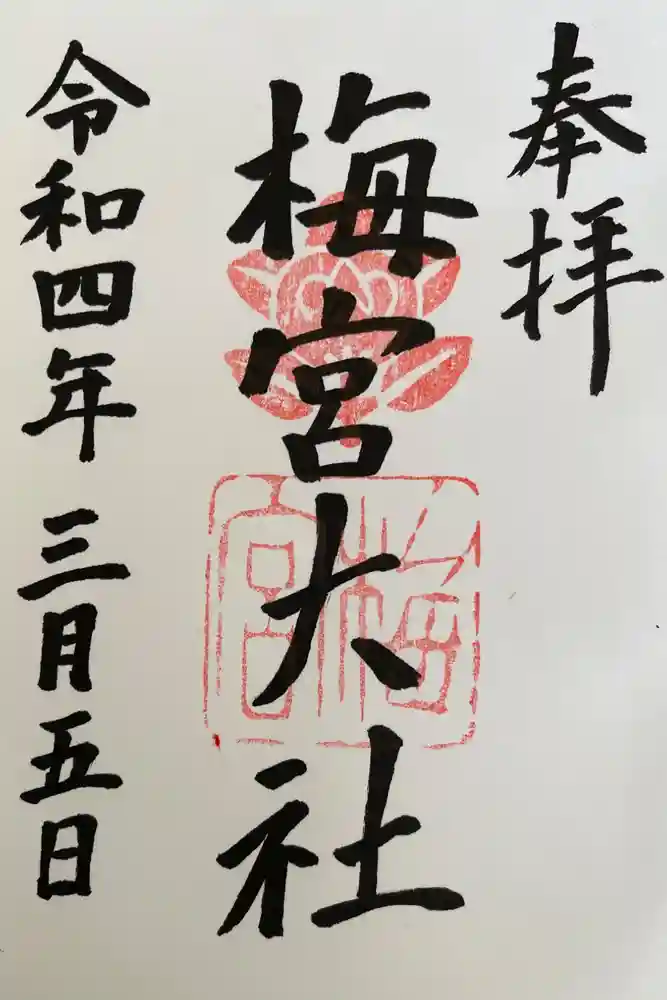 奉拝
梅宮大社
梅宮
令和四年三月五日